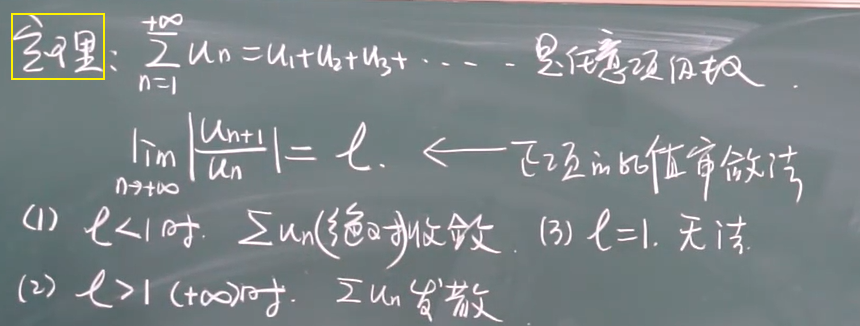 定理: $\sum_{n=1}^{+\infty} u_n = u_1+u_2+u_3+\cdots\cdots$ 是任意项级数.
$\lim_{n\to+\infty} \left|\frac{u_{n+1}}{u_n}\right| = l.$ ← 正项的比值审敛法
(1) $l<1$ 时. $\sum u_n$(绝对)收敛. (3) $l=1.$ 无法.
(2) $l>1$ $(+\infty)$时. $\sum u_n$ 发散